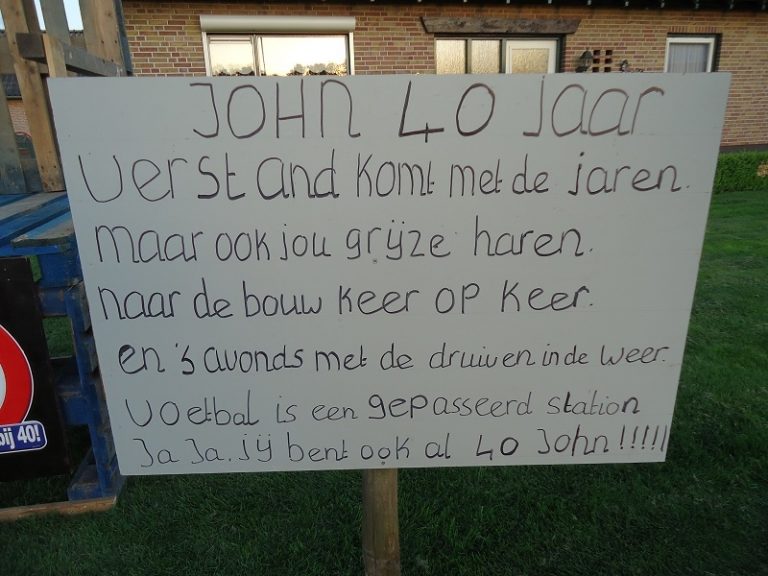 JOHN 40 Jaar
Verstand komt met de jaren.
maar ook jou grijze haren.
naar de bouw keer op keer.
en 's avonds met de druiven in de weer.
Voetbal is een gepasseerd station
Ja Ja. jij bent ook al 40 John!!!!!
bij 40!